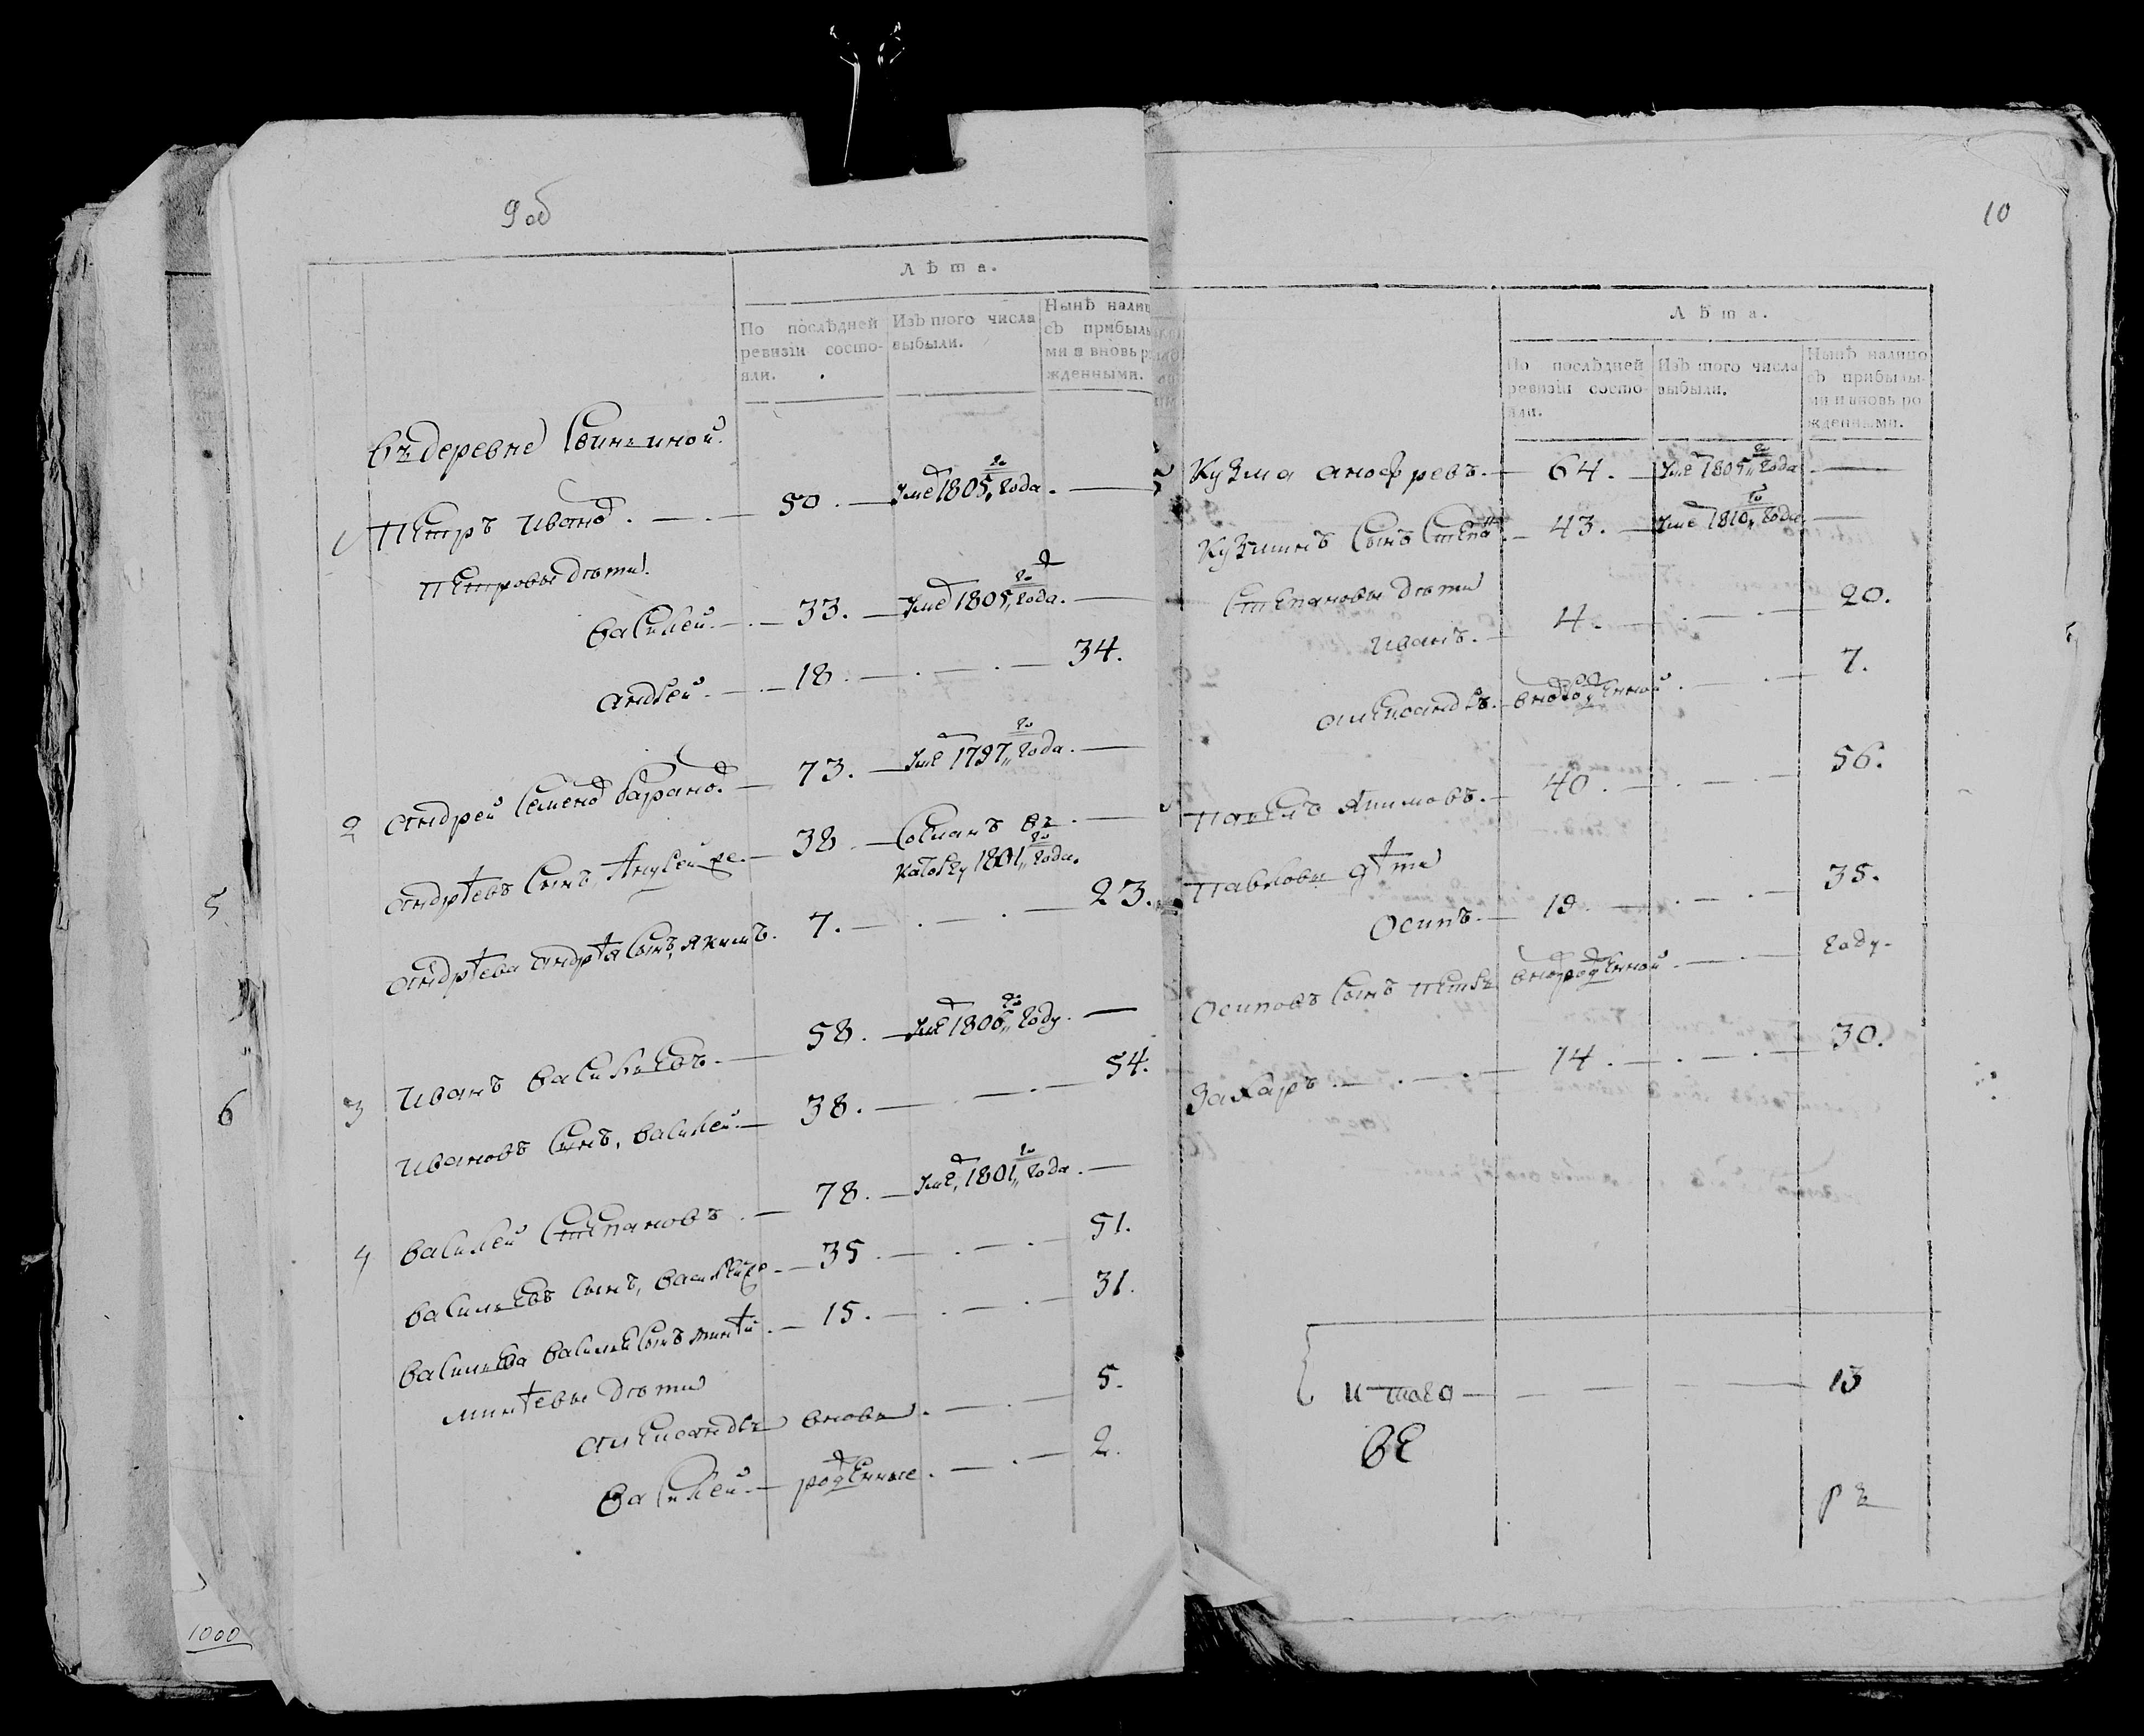 9 об
Лѣта.
По послѣдней ревизіи состояли.
Изъ того числа выбыли.
Нынѣ налиц
съ прибылы
ми и вновь р
жденными.
Въ деревне
1 Петръ Иванов. 50. Умер 1805го года.
Петровы дѣти
Василей. 33. Умер 1805го года.
Андрей. 18. 34.
2 Андрей Семенов Баранов. 73. Умер 1797го года.
Андрѣевъ сынъ, Андрей же. 38. Сосланъ въ
каторгу 1801го года.
Андрѣева Андрѣя сынъ, Якимъ. 7. 23.
3 Иванъ Васильевъ. 58. Умер 1806го году.
Ивановъ сынъ, Василей. 38. 54.
4 Василей Степановъ. 78. Умер, 1801го года.
Васильевъ сынъ, Василей же. 35. 51.
Васильева Василья сынъ Минѣй. 15. 31.
Минѣевы дѣти
Александръ вновь 5.
Василей. рожденные. 2.
5
6
1000
10
Лѣта.
По послѣдней ревизіи состояли.
Изъ того числа выбыли.
Нынѣ налицо съ прибылыми и вновь рожденными.
5 Кузма Анофревъ. 64. Умер 1805го года.
Кузминъ сынъ Степан. 43. Умер 1810го года.
Степановы дѣти
Иванъ. 4. 20.
Александръ. вновь рожденной. 7.
Павелъ Якимовъ. 40. 56.
Павловы дѣти
Осипъ. 19. 35.
Осиповъ сынъ Петръ вновь рожденной. году.
Захаръ. 14. 30.
Итого 13